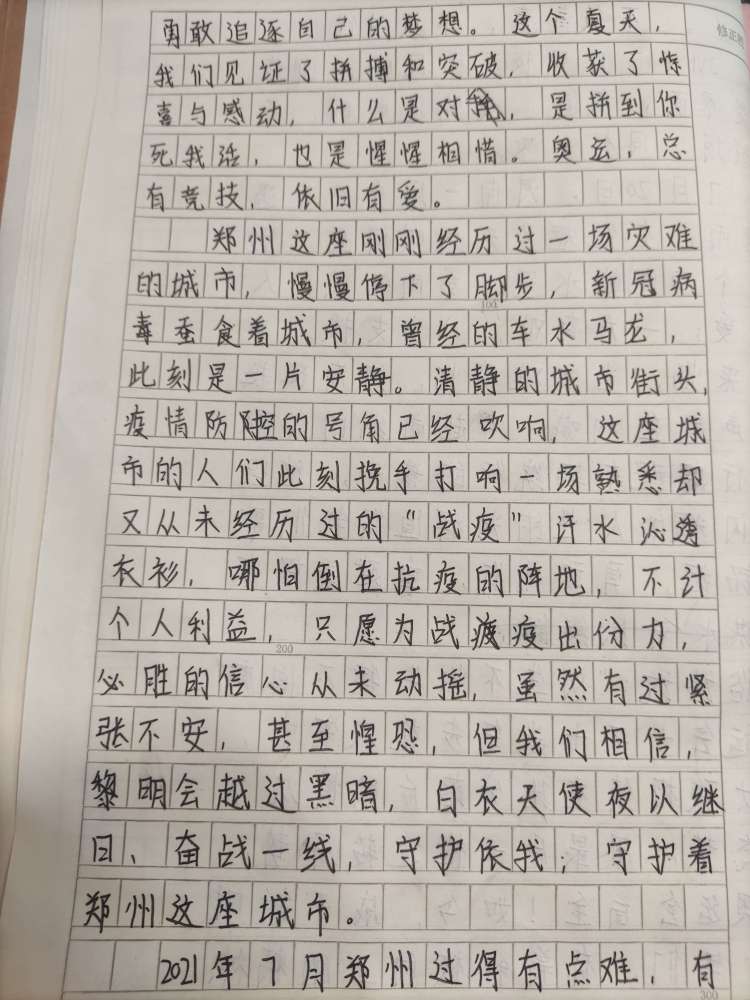 勇敢追逐自己的梦想。这个夏天，
我们见证了拼搏和突破，收获了惊
喜与感动，什么是对手，是拼到你
死我活，也是惺惺相惜。奥运，总
有竞技，依旧有爱。
郑州这座刚刚经历过一场灾难
的城市，慢慢停下了脚步，新冠病
100
毒蚕食着城市，曾经的车水马龙，
此刻是一片安静。清静的城市街头，
疫情防控的号角已经吹响，这座城
市的人们此刻挽手打响一场熟悉却
又从未经历过的“战疫”汗水沁透
衣衫，哪怕倒在抗疫的阵地，不计
个人利益，只愿为战疫出份力，
200
必胜的信心从未动摇，虽然有过紧
张不安，甚至惶恐，但我们相信，
黎明会越过黑暗，白衣天使夜以继
日、奋战一线，守护依我；守护着
郑州这座城市。
2021年7月郑州过得有点难，有
300